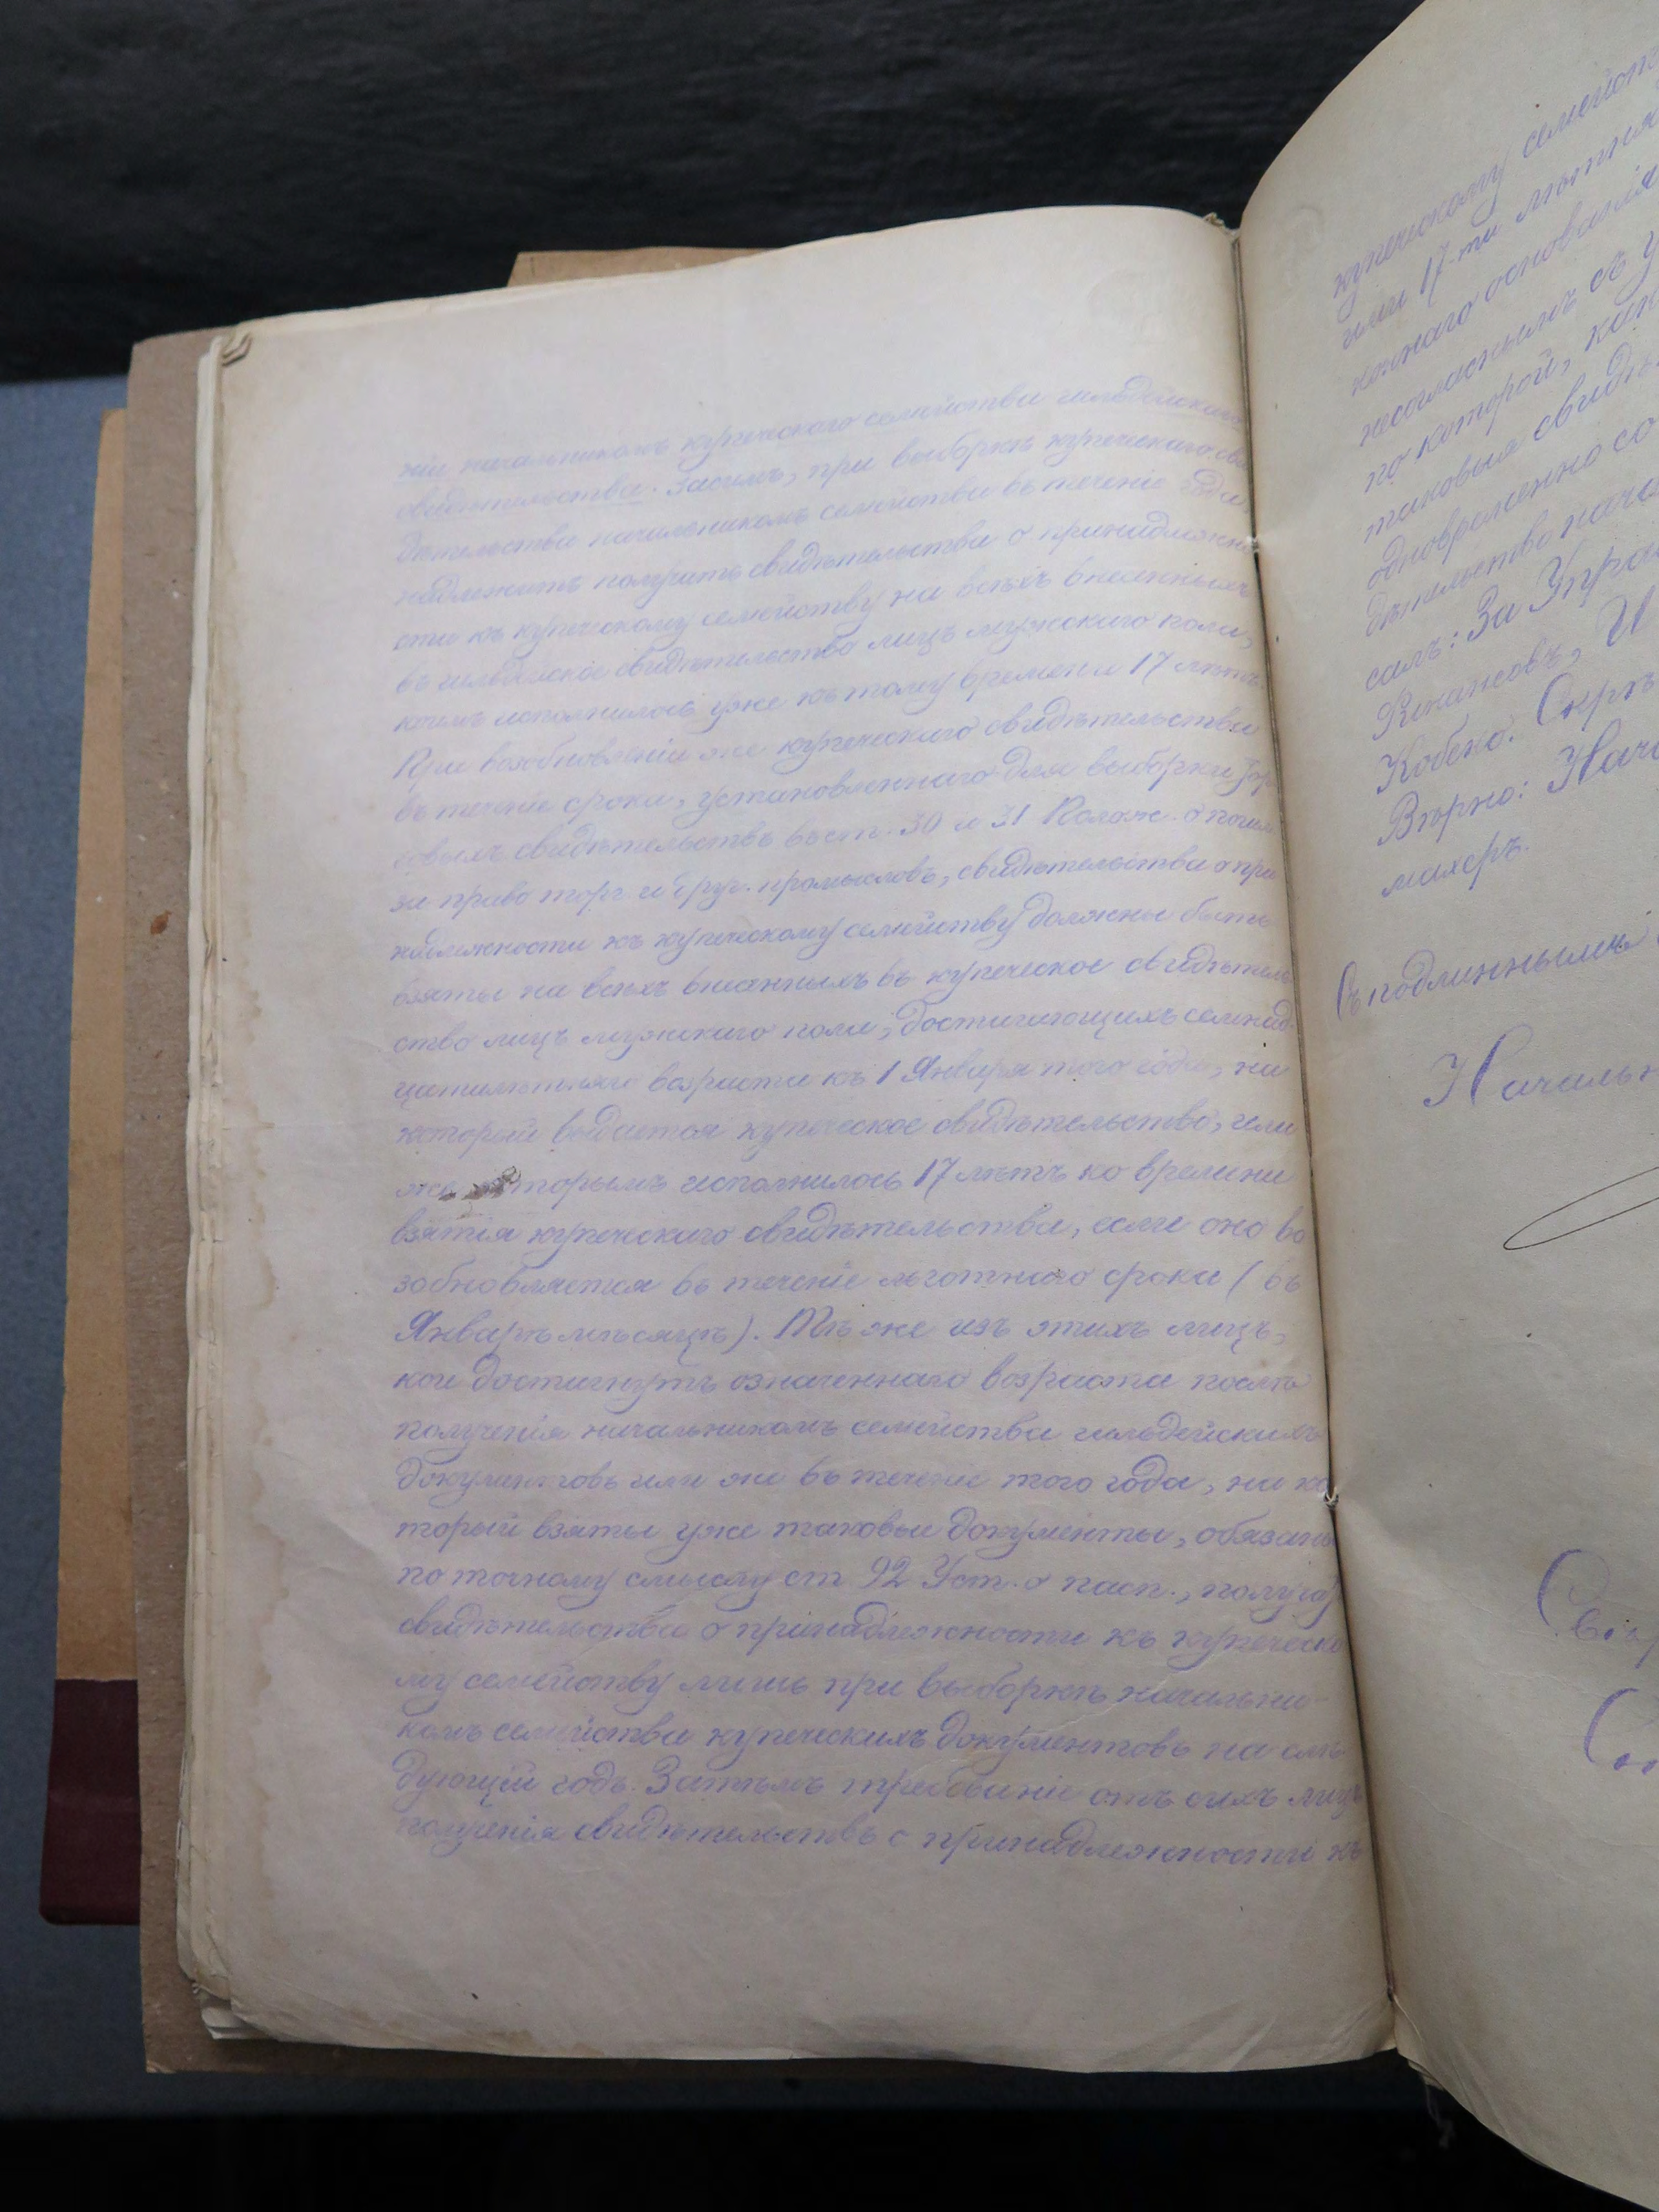 ніи начальникомъ купеческаго семейства гильдейскаго
свидѣтельства. Засимъ, при выборкѣ купеческаго сви
дѣтельства начальникомъ семейства въ теченіе года
надлежитъ получать свидѣтельства о принадлежно
сти къ купеческому семейству на всѣхъ вписанныхъ
въ гильдейское свидѣтельство лицъ мужскаго пола,
коимъ исполнилось уже къ тому времени 17 лѣтъ.
При возобновленіи же купеческаго свидѣтельства
въ теченіе срока, установленнаго для выборки тор
говыхъ свидѣтельствъ въ ст. 30 и 31 Полож. о пошл.
за право торг. и друг. промысловъ, свидѣтельства о при
надлежности къ купеческому семейству должны быть
взяты на всѣхъ вписанныхъ въ купеческое свидѣтель
ство лицъ мужскаго пола, достигающихъ семнад
цатилѣтняго возраста къ 1 Января того года, на
который выдается купеческое свидѣтельство, или
же которымъ исполнилось 17 лѣтъ ко времени
взятія купеческаго свидѣтельства, если оно во
зобновляется въ теченіе льготнаго срока (въ
Январѣ мѣсяцѣ). Тѣ же изъ этихъ лицъ,
кои достигнутъ означеннаго возраста послѣ
полученія начальникомъ семейства гильдейскихъ
документовъ или же въ теченіе того года, на ко
торый взяты уже таковые документы, обязаны
по точному смыслу ст 92 Уст. о пасп.,
свидѣтельства о принадлежности къ купеческо
му семейству лишь при выборкѣ начальни-
комъ семейства купеческихъ документовъ на слѣ
дующій годъ. Затѣмъ требованіе отъ сихъ лицъ
полученія свидѣтельствъ о принадлежности къ
купеческому семейств
или 17-ти лѣтня
коннаго основанія
несогласнымъ съ у
по которой, ка
таковыя свидѣ
одновременно со
дѣтельство нача
салъ: За Упра
Финансовъ, И
Кобеко. Скрѣ
Вѣрно: Нача
махеръ.
Съ подлиннымъ
Начальн